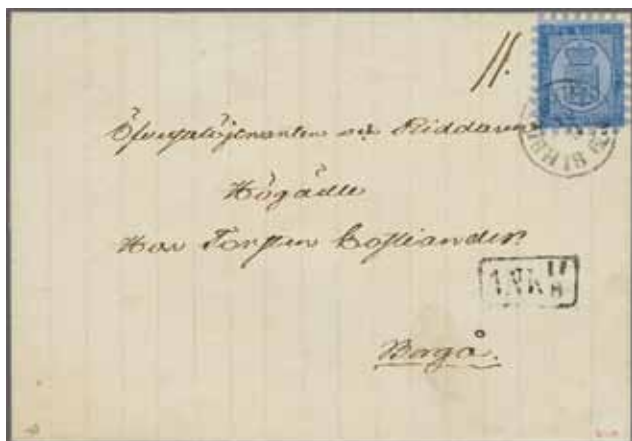 11.
Öfverstelöjtnanten och Riddaren
Högädle
Herr Torsten Costiander
ANK 11/8
Borgå.